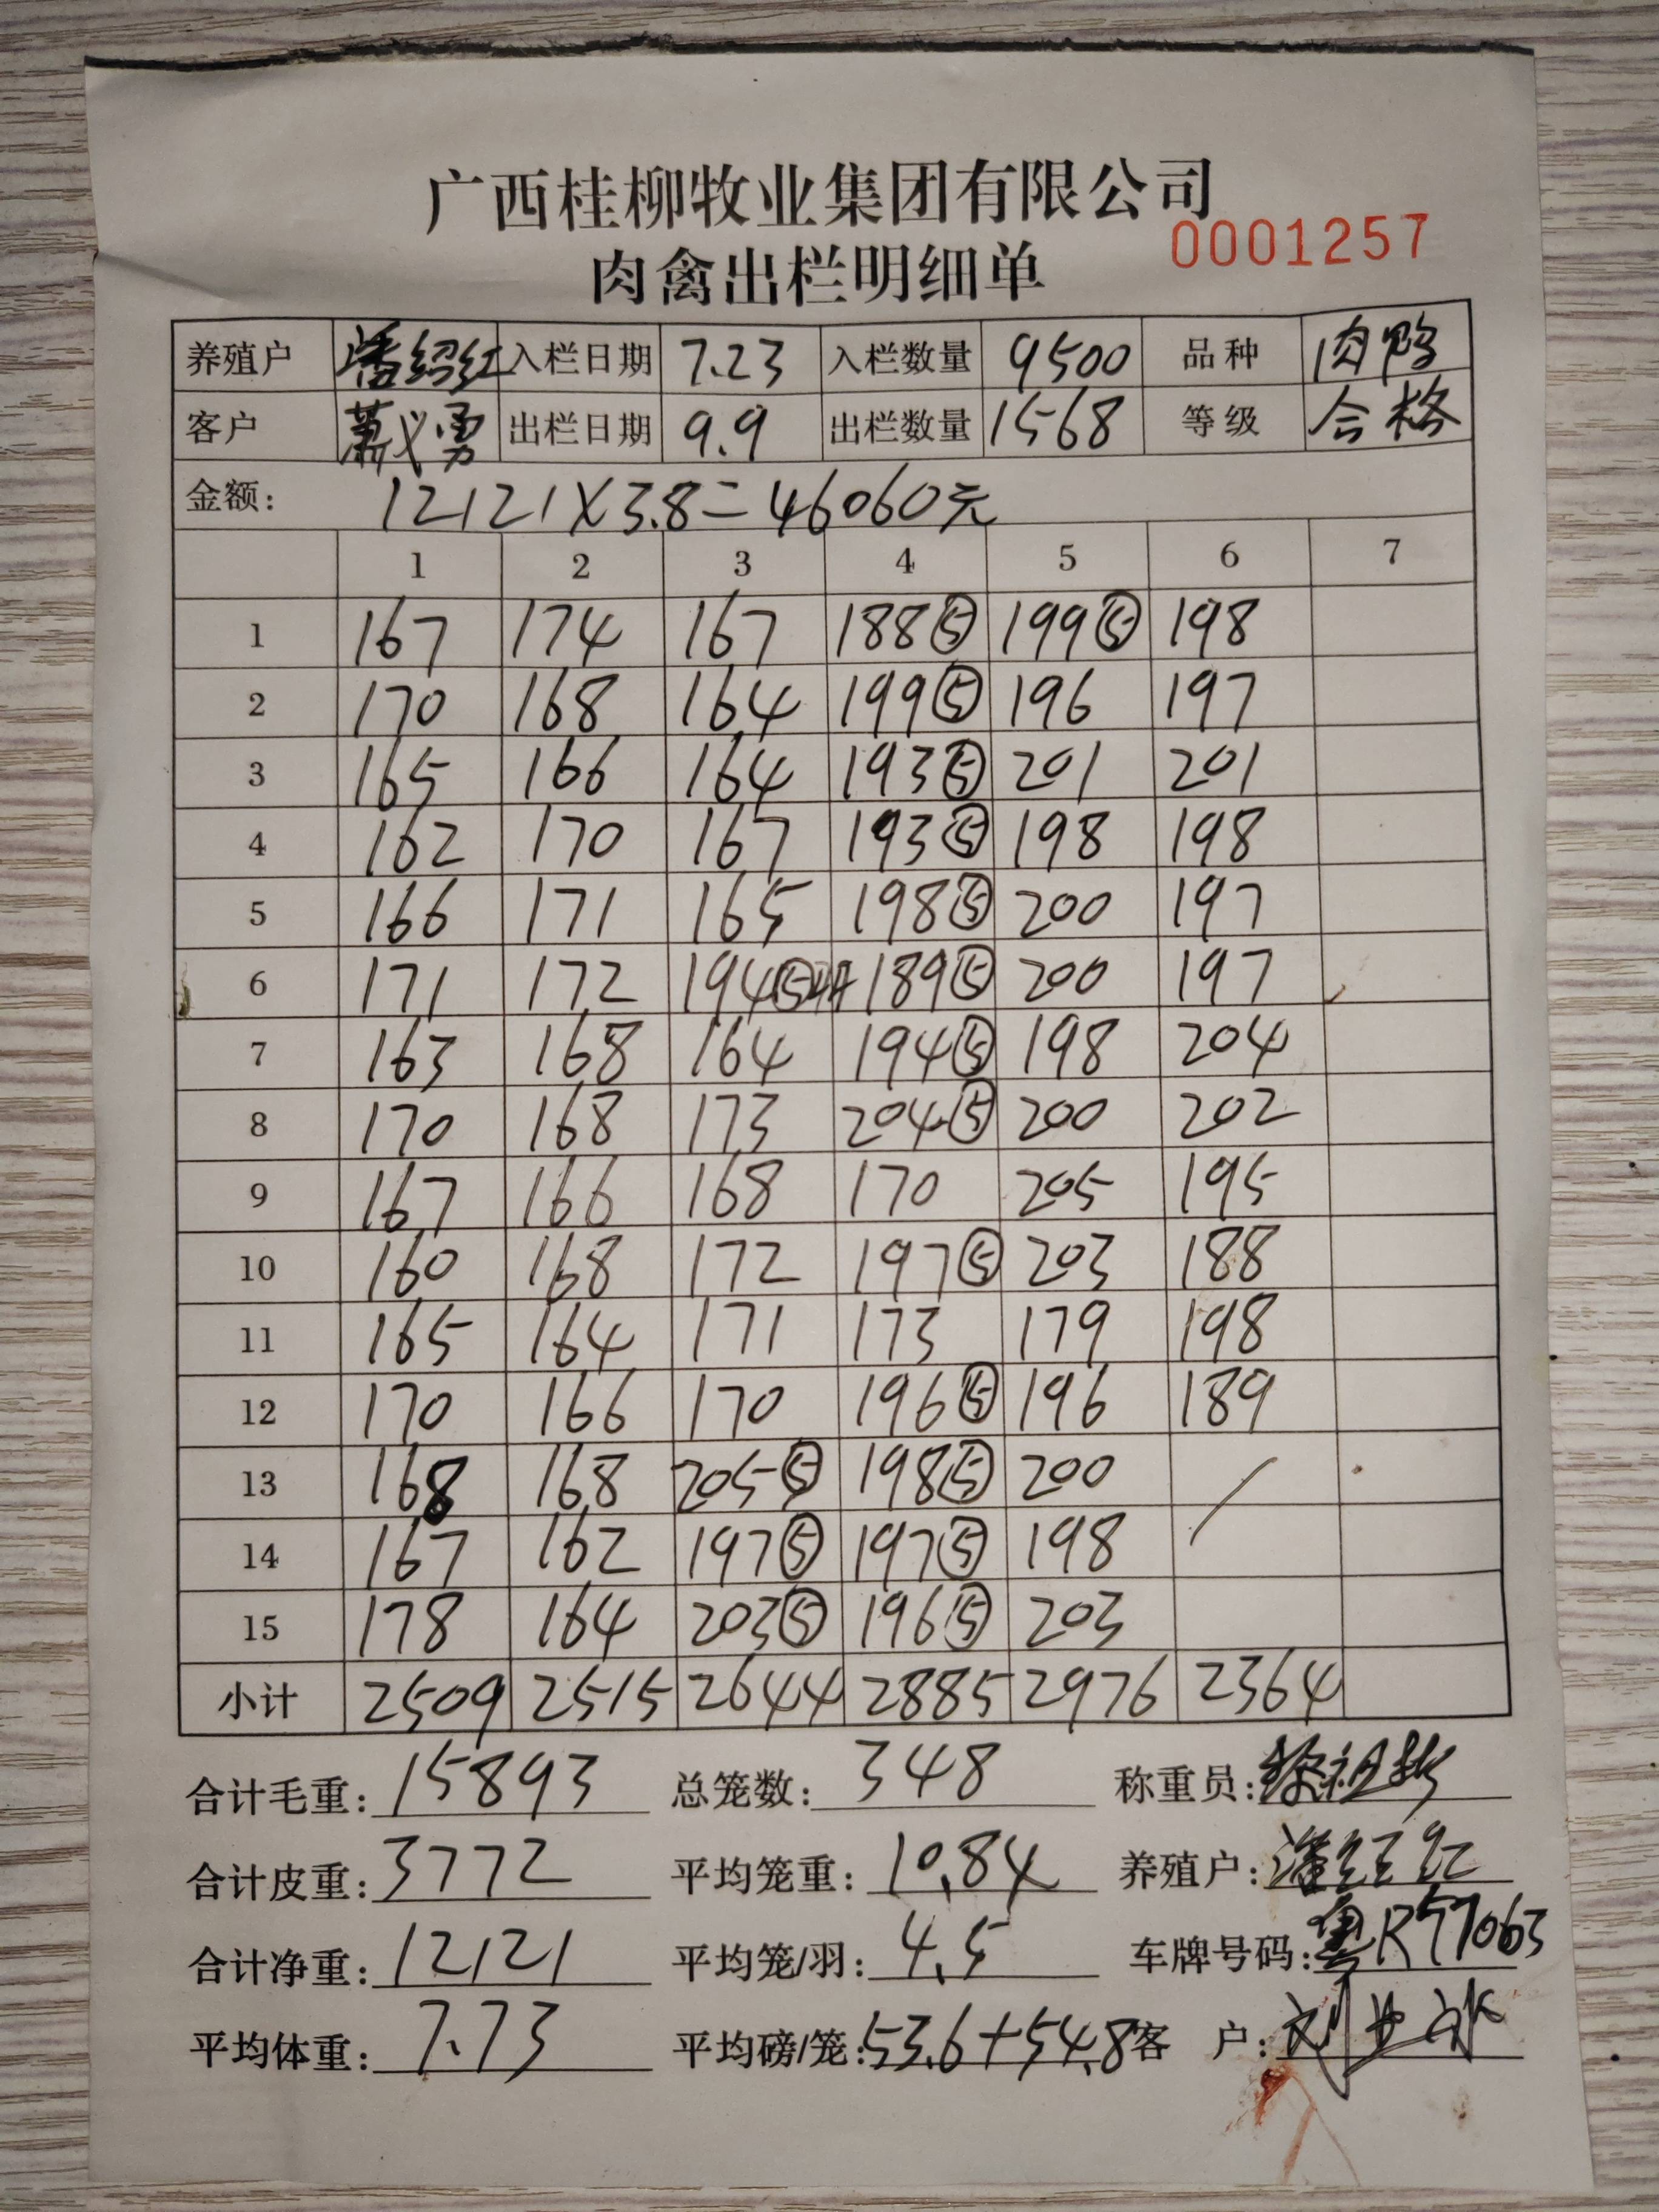 广西桂柳牧业集团有限公司
0001257
肉禽出栏明细单
养殖户 潘绍红 入栏日期 7.23 入栏数量 9500 品种 肉鸭
客户 萧义勇 出栏日期 9.9 出栏数量 1568 等级 合格
金额: 12121×3.8=46060元
1 2 3 4 5 6 7
1 167 174 167 188⑤ 199⑤ 198
2 170 168 164 199⑤ 196 197
3 165 166 164 193⑤ 201 201
4 162 170 167 193⑤ 198 198
5 166 171 165 198⑤ 200 197
6 171 172 194⑤ 189⑤ 200 197
7 163 168 164 194⑤ 198 204
8 170 168 173 204⑤ 200 202
9 167 166 168 170 205 195
10 160 168 172 197⑤ 203 188
11 165 164 171 173 179 198
12 170 166 170 196⑤ 196 189
13 168 168 205⑤ 198⑤ 200
14 167 162 197⑤ 197⑤ 198
15 178 164 203⑤ 196⑤ 203
小计 2509 2515 2644 2885 2976 2364
合计毛重: 15893 总笼数: 348 称重员:
合计皮重: 3772 平均笼重: 10.84 养殖户: 潘绍红
合计净重: 12121 平均笼/羽: 4.5 车牌号码: 粤R57063
平均体重: 7.73 平均磅/笼: 53.6+54.8 客 户: